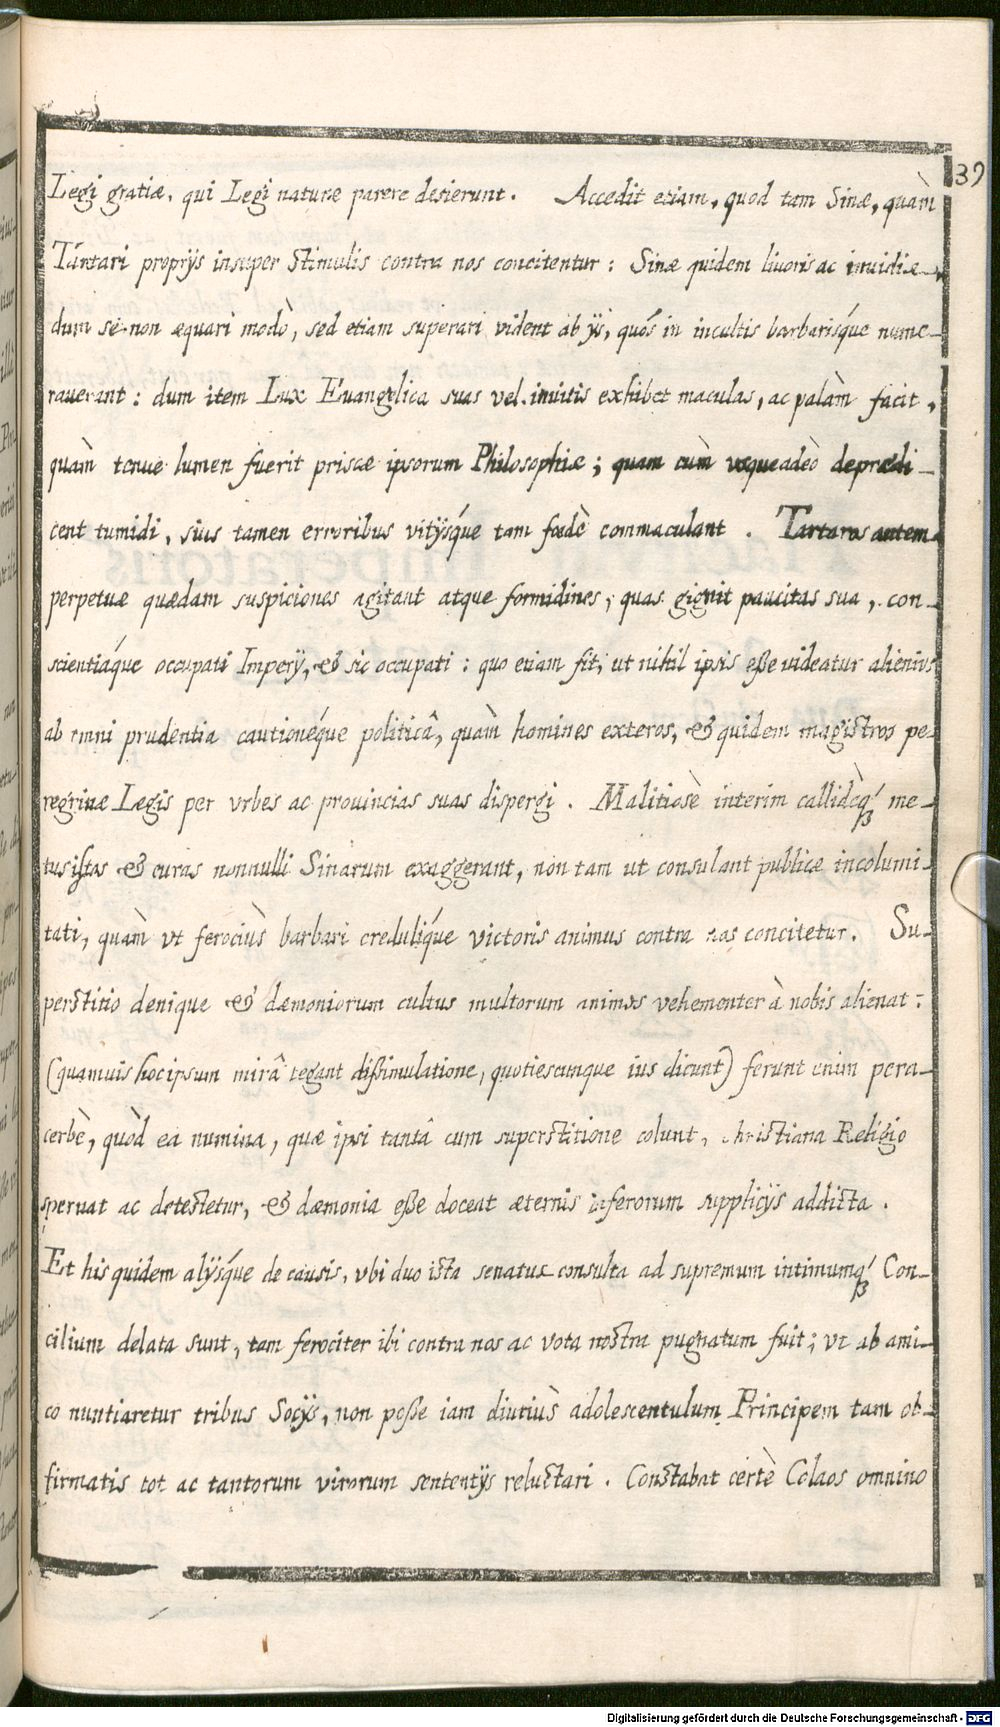 39
Legi gratiæ, qui Legi naturæ parere desierunt. Accedit etiam, quod tam Sinæ, quàm
Tártari proprijs insuper stimulis contra nos concitentur: Sinæ quidem liuoris ac inuidiæ
dum se non æquari modò, sed etiam superari vident ab ijs, quos in incultis barbarisq́ue nume-
rauerant: dum item Lux Euangelica suas vel inuitis exhibet maculas, ac palàm facit,
quàm tenue lumen fuerit priscæ ipsorum Philosophiæ; quam cùm vsqueadeò deprædi-
cent tumidi, suis tamen erroribus vitijsq́ue tam fœdè commaculant. Tartaros autem
perpetuæ quædam suspiciones agitant atque formidines, quas gignit paucitas sua, con-
scientiáque occupati Imperij, & sic occupati: quo etiam fit, ut nihil ipsis esse videatur alienius
ab omni prudentia cautionéque politicâ, quàm homines exteros, & quidem magistros pe-
regrinæ Legis per vrbes ac prouincias suas dispergi. Malitiosè interim callidèq́ꝫ me-
tus istos & curas nonnulli Sinarum exaggerant, non tam ut consulant publicæ incolumi-
tati, quàm vt ferociùs barbari credulíque victoris animus contra nos concitetur. Su-
perstitio denique & dæmoniorum cultus multorum animos vehementer à nobis alienat:
(quamuis hoc ipsum mirâ tegant dissimulatione, quotiescumque ius dicunt) ferunt enim pera-
cerbè, quòd ea numina, quæ ipsi tantâ cum superstitione colunt, christiana Religio
spernat ac detestetur, & dæmonia esse doceat æternis inferorum supplicijs addicta.
Et his quidem alijsq́ue de causis, vbi duo ista senatus consulta ad supremum intimumq́ꝫ Con-
cilium delata sunt, tam ferociter ibi contra nos ac vota nostra pugnatum fuit; vt ab ami-
co nuntiaretur tribus Socijs, non posse iam diutiùs adolescentulum Principem tam ob-
firmatis tot ac tantorum virorum sententijs reluctari. Constabat certè Colaos omnino
Digitalisierung gefördert durch die Deutsche Forschungsgemeinschaft - DFG